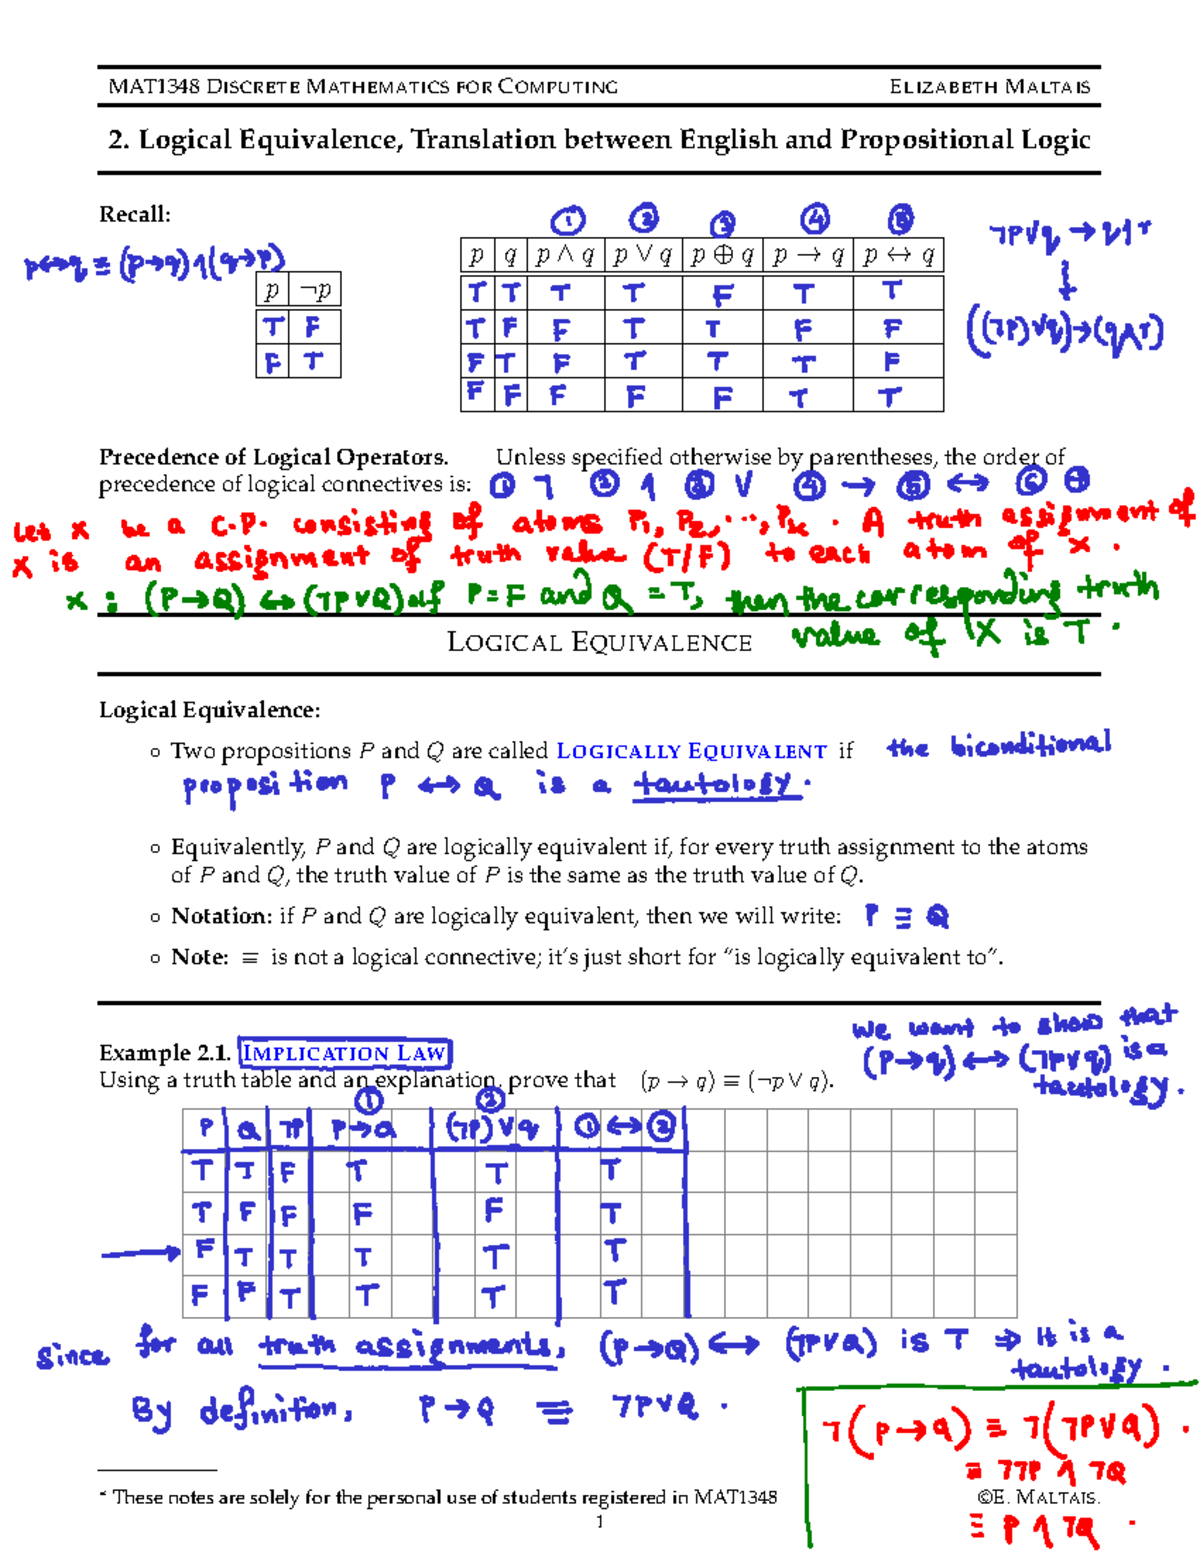 MAT1348 DISCRETE MATHEMATICS FOR COMPUTING ELIZABETH MALTAIS
2. Logical Equivalence, Translation between English and Propositional Logic
Recall:
① ② ③ ④ ⑤
p↔q ≡ (p→q)∧(q→p)
¬p∨q → q∧r
↓
((¬p)∨q)→(q∧r)
p ¬p
T F
F T
p q p ∧ q p ∨ q p ⊕ q p → q p ↔ q
T T T T F T T
T F F T T F F
F T F T T T F
F F F F F T T
Precedence of Logical Operators. Unless specified otherwise by parentheses, the order of
precedence of logical connectives is: ① ¬ ② ∧ ③ ∨ ④ → ⑤ ↔ ⑥ ⊕
Let X be a C.P. consisting of atoms P₁, P₂, ..., Pₖ. A truth assignment of
X is an assignment of truth value (T/F) to each atom of X.
X : (P→Q) ↔ (¬P∨Q) if P=F and Q=T, then the corresponding truth
value of X is T.
LOGICAL EQUIVALENCE
Logical Equivalence:
◦ Two propositions P and Q are called LOGICALLY EQUIVALENT if the biconditional
proposition P ↔ Q is a tautology.
◦ Equivalently, P and Q are logically equivalent if, for every truth assignment to the atoms
of P and Q, the truth value of P is the same as the truth value of Q.
◦ Notation: if P and Q are logically equivalent, then we will write: P ≡ Q
◦ Note: ≡ is not a logical connective; it's just short for "is logically equivalent to".
We want to show that
(P→q) ↔ (¬p∨q) is a
tautology.
Example 2.1. IMPLICATION LAW
Using a truth table and an explanation, prove that (p → q) ≡ (¬p ∨ q).
① ②
P Q ¬P P→Q (¬P)∨q ①↔②
T T F T T T
T F F F F T
→ F T T T T T
F F T T T T
since for all truth assignments, (P→Q) ↔ (¬P∨Q) is T ⇒ It is a
tautology.
By definition, P→Q ≡ ¬P∨Q.
¬(P→Q) ≡ ¬(¬P∨Q).
≡ ¬¬P ∧ ¬Q
≡ P ∧ ¬Q.
* These notes are solely for the personal use of students registered in MAT1348 ©E. MALTAIS.
1